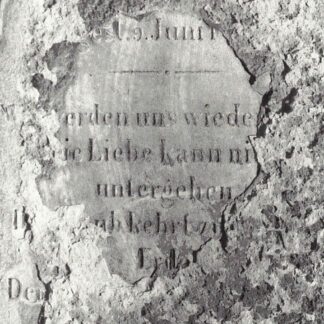 9. Juni
erden uns wiede
ie Liebe kann ni
untergehen
ub kehrt z
Erde
De